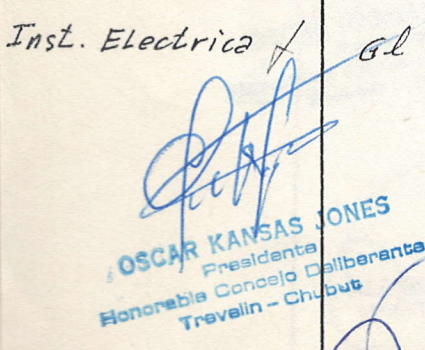 Inst. Electrica Gl
OSCAR KANSAS JONES
Presidente
Honorable Concejo Deliberante
Trevelin - Chubut